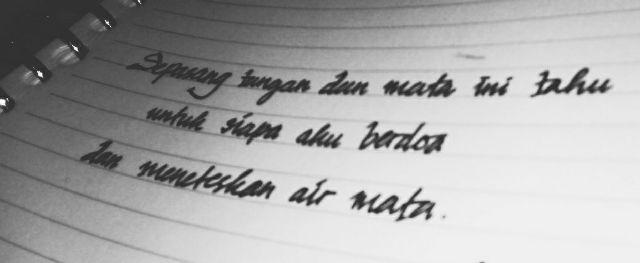 Sepasang tangan dan mata ini tahu
untuk siapa aku berdoa
dan meneteskan air mata.